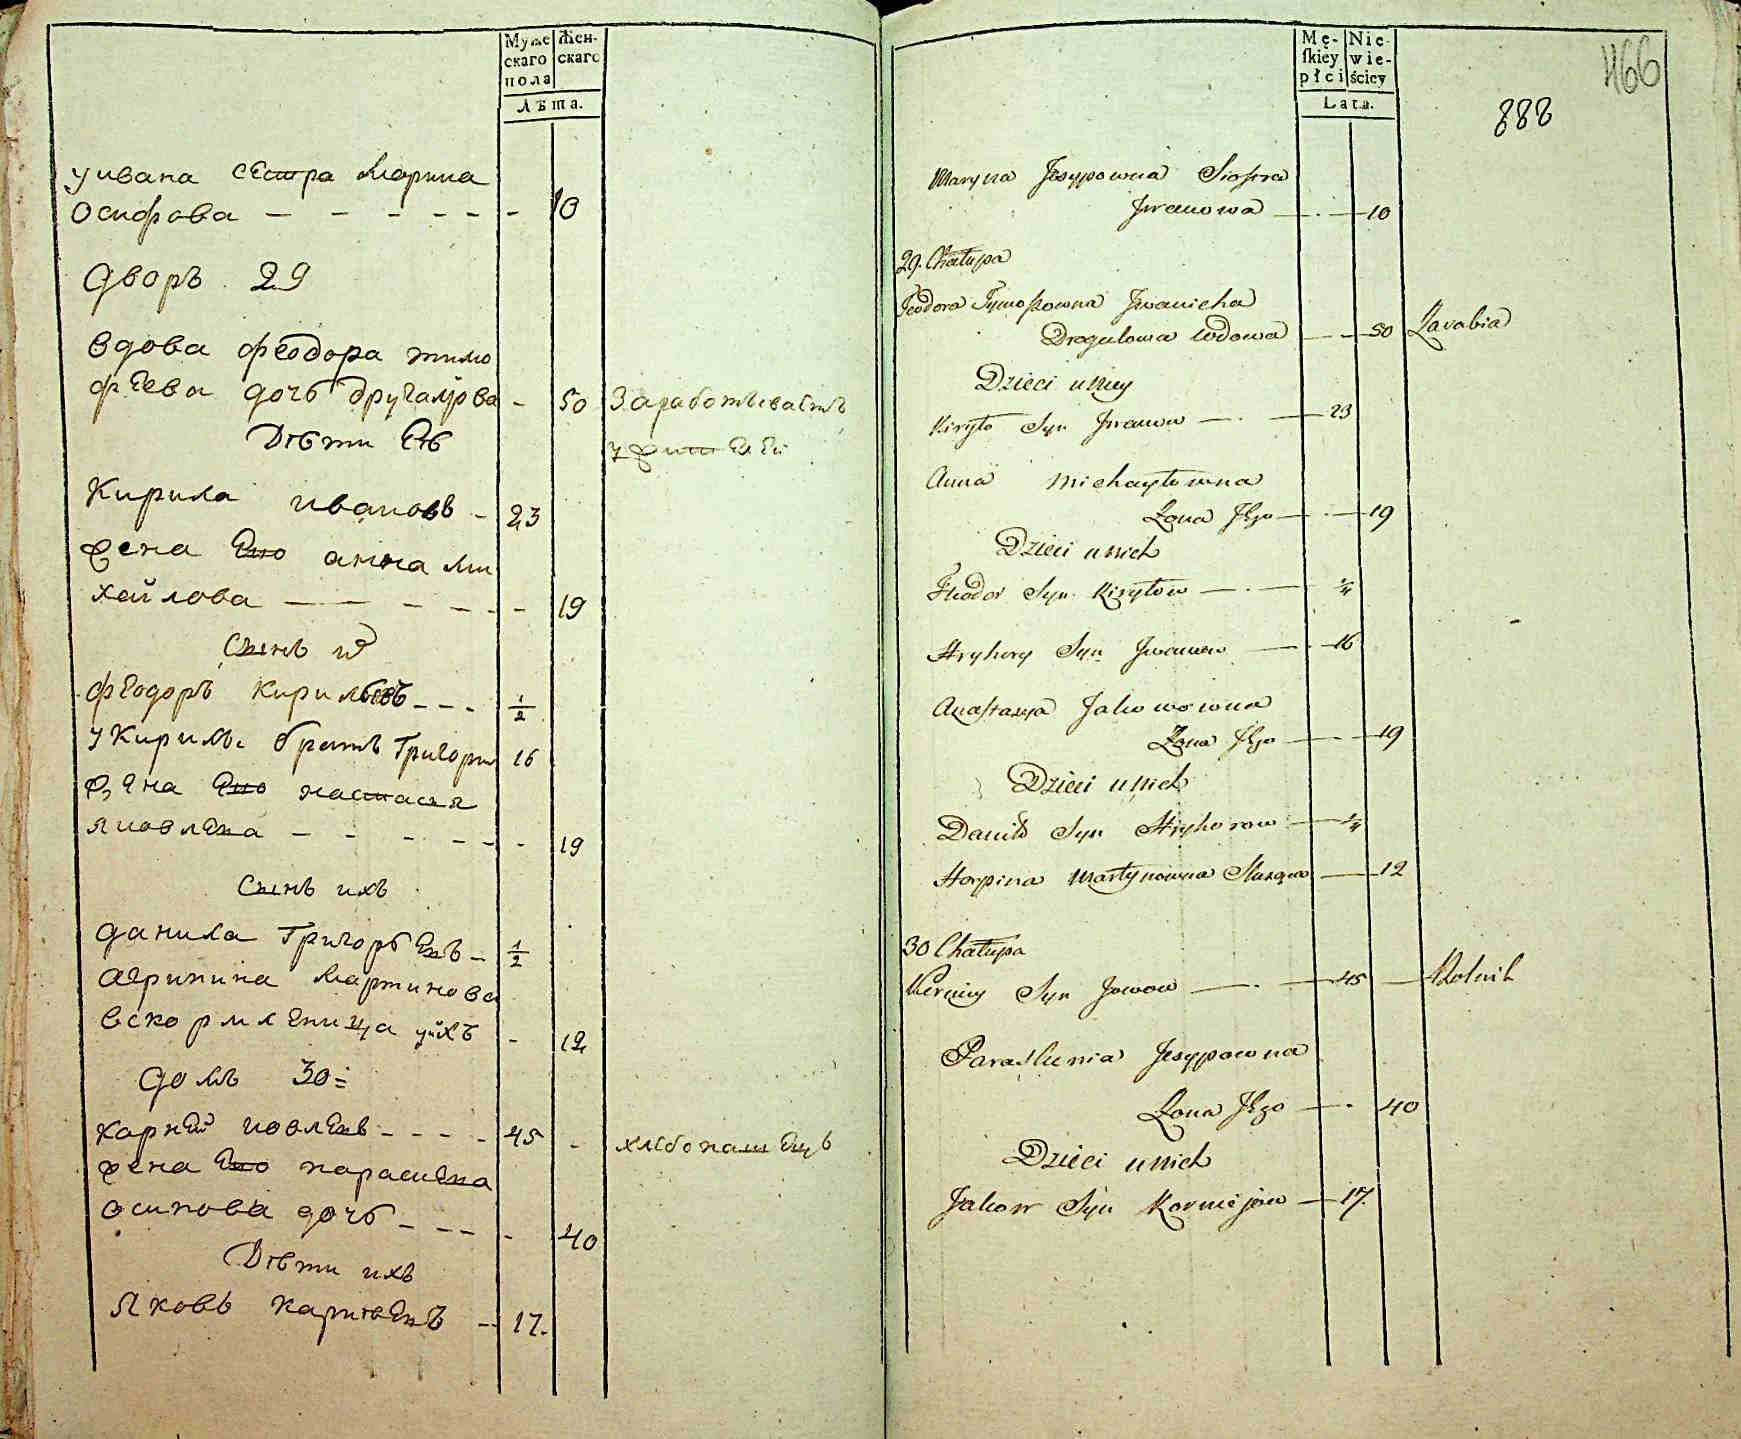 Муже
скаго
пола
Жен-
скаго
Лѣта.
у ивана сестра Марина
Осифова - - - - - - 10
дворъ 29
вдова феодора тимо
фѣева дочь Другалѣова - 50 Заработывастъ
Дѣти Еѣ
Кирила ивановъ - 23
жена Ено анна Ми
хайлова - - - - - - 19
Сынъ их
феодоръ Кириловъ - - - 1/2
у Кирилы братъ Григори 16
жена Ено настасия
Яковлева - - - - - - 19
Сынъ ихъ
данила Григорьевъ - 1/2
Агрипина Мартинова
вскормленица у ихъ - 12
домъ 30
карней иовлевъ - - - - 45 - хлебопашецъ
жена Ено парасиева
осипова дочь - - - - 40
Дѣти ихъ
Яковъ карнѣевъ - 17.
Mę-
ſkiey
płci
Nie-
wie-
ściey
Lata.
466
888
Maryna Jesypowna Siostra
Jwanowa - 10
29. Chałupa
Teodora Tymoszowna Jwanicha
Drogalowa Wdowa - 50 Zarabia
Dzieci u Niey
Kiryło Syn Jwanow - 23
Anna Michayłowna
Żona Jego - 19
Dzieci u Nich
Fiodor Syn Kiryłow - 1/2
Hryhory Syn Jwanow - 16
Anastazya Jakowowna
Żona Jego - 19
Dzieci u Nich
Daniło Syn Hryhorow - 1/2
Horpina Martynowna Sługa - 12
30 Chałupa
Kerniey Syn Jowow - 45 - Rolnik
Paraskienia Jesypowna
Żona Jego - 40
Dzieci u Nich
Jakow Syn Korniejow - 17.